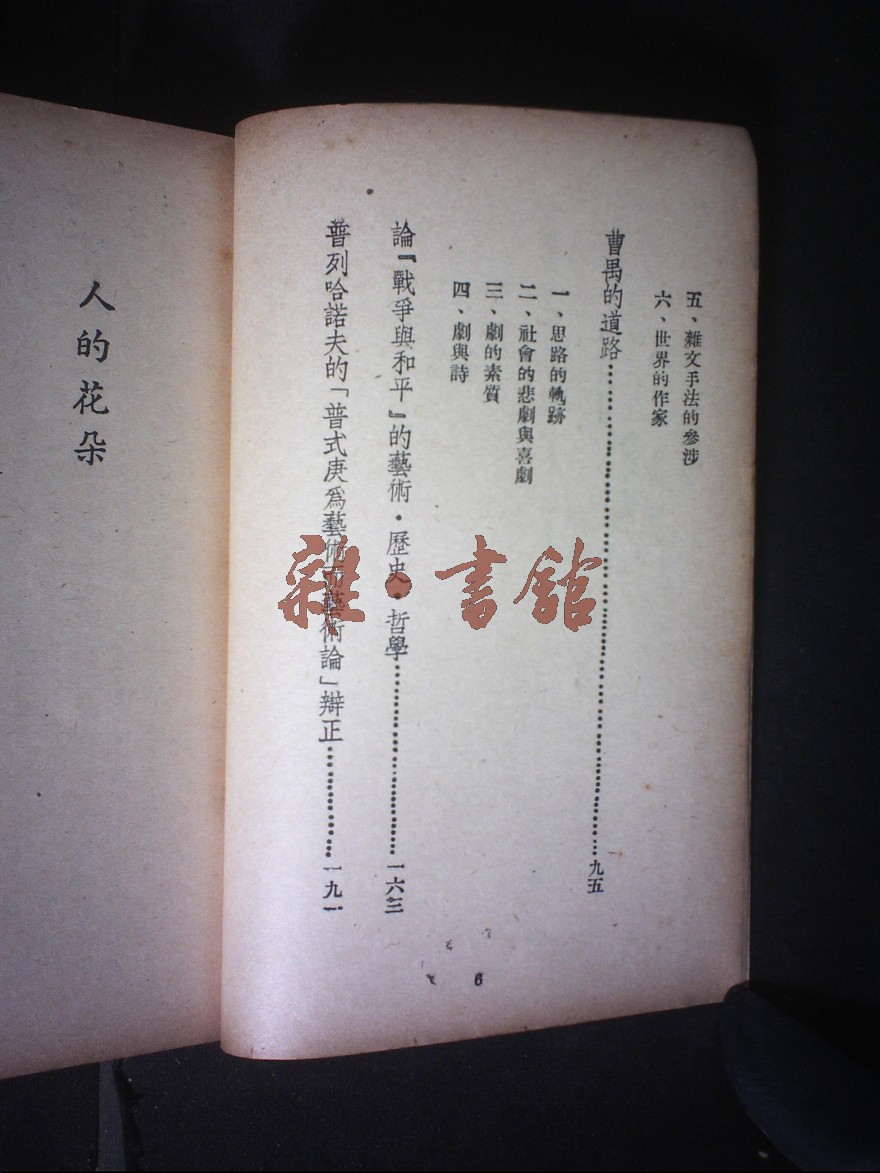 五、雜文手法的參涉
六、世界的作家
曹禺的道路……九五
一、思路的軌跡
二、社會的悲劇與喜劇
三、劇的素質
四、劇與詩
論『戰爭與和平』的藝術·歷史·哲學……一六三
普列哈諾夫的「普式庚爲藝術而藝術論」辯正……一九一
6
人的花朵
雜·書館